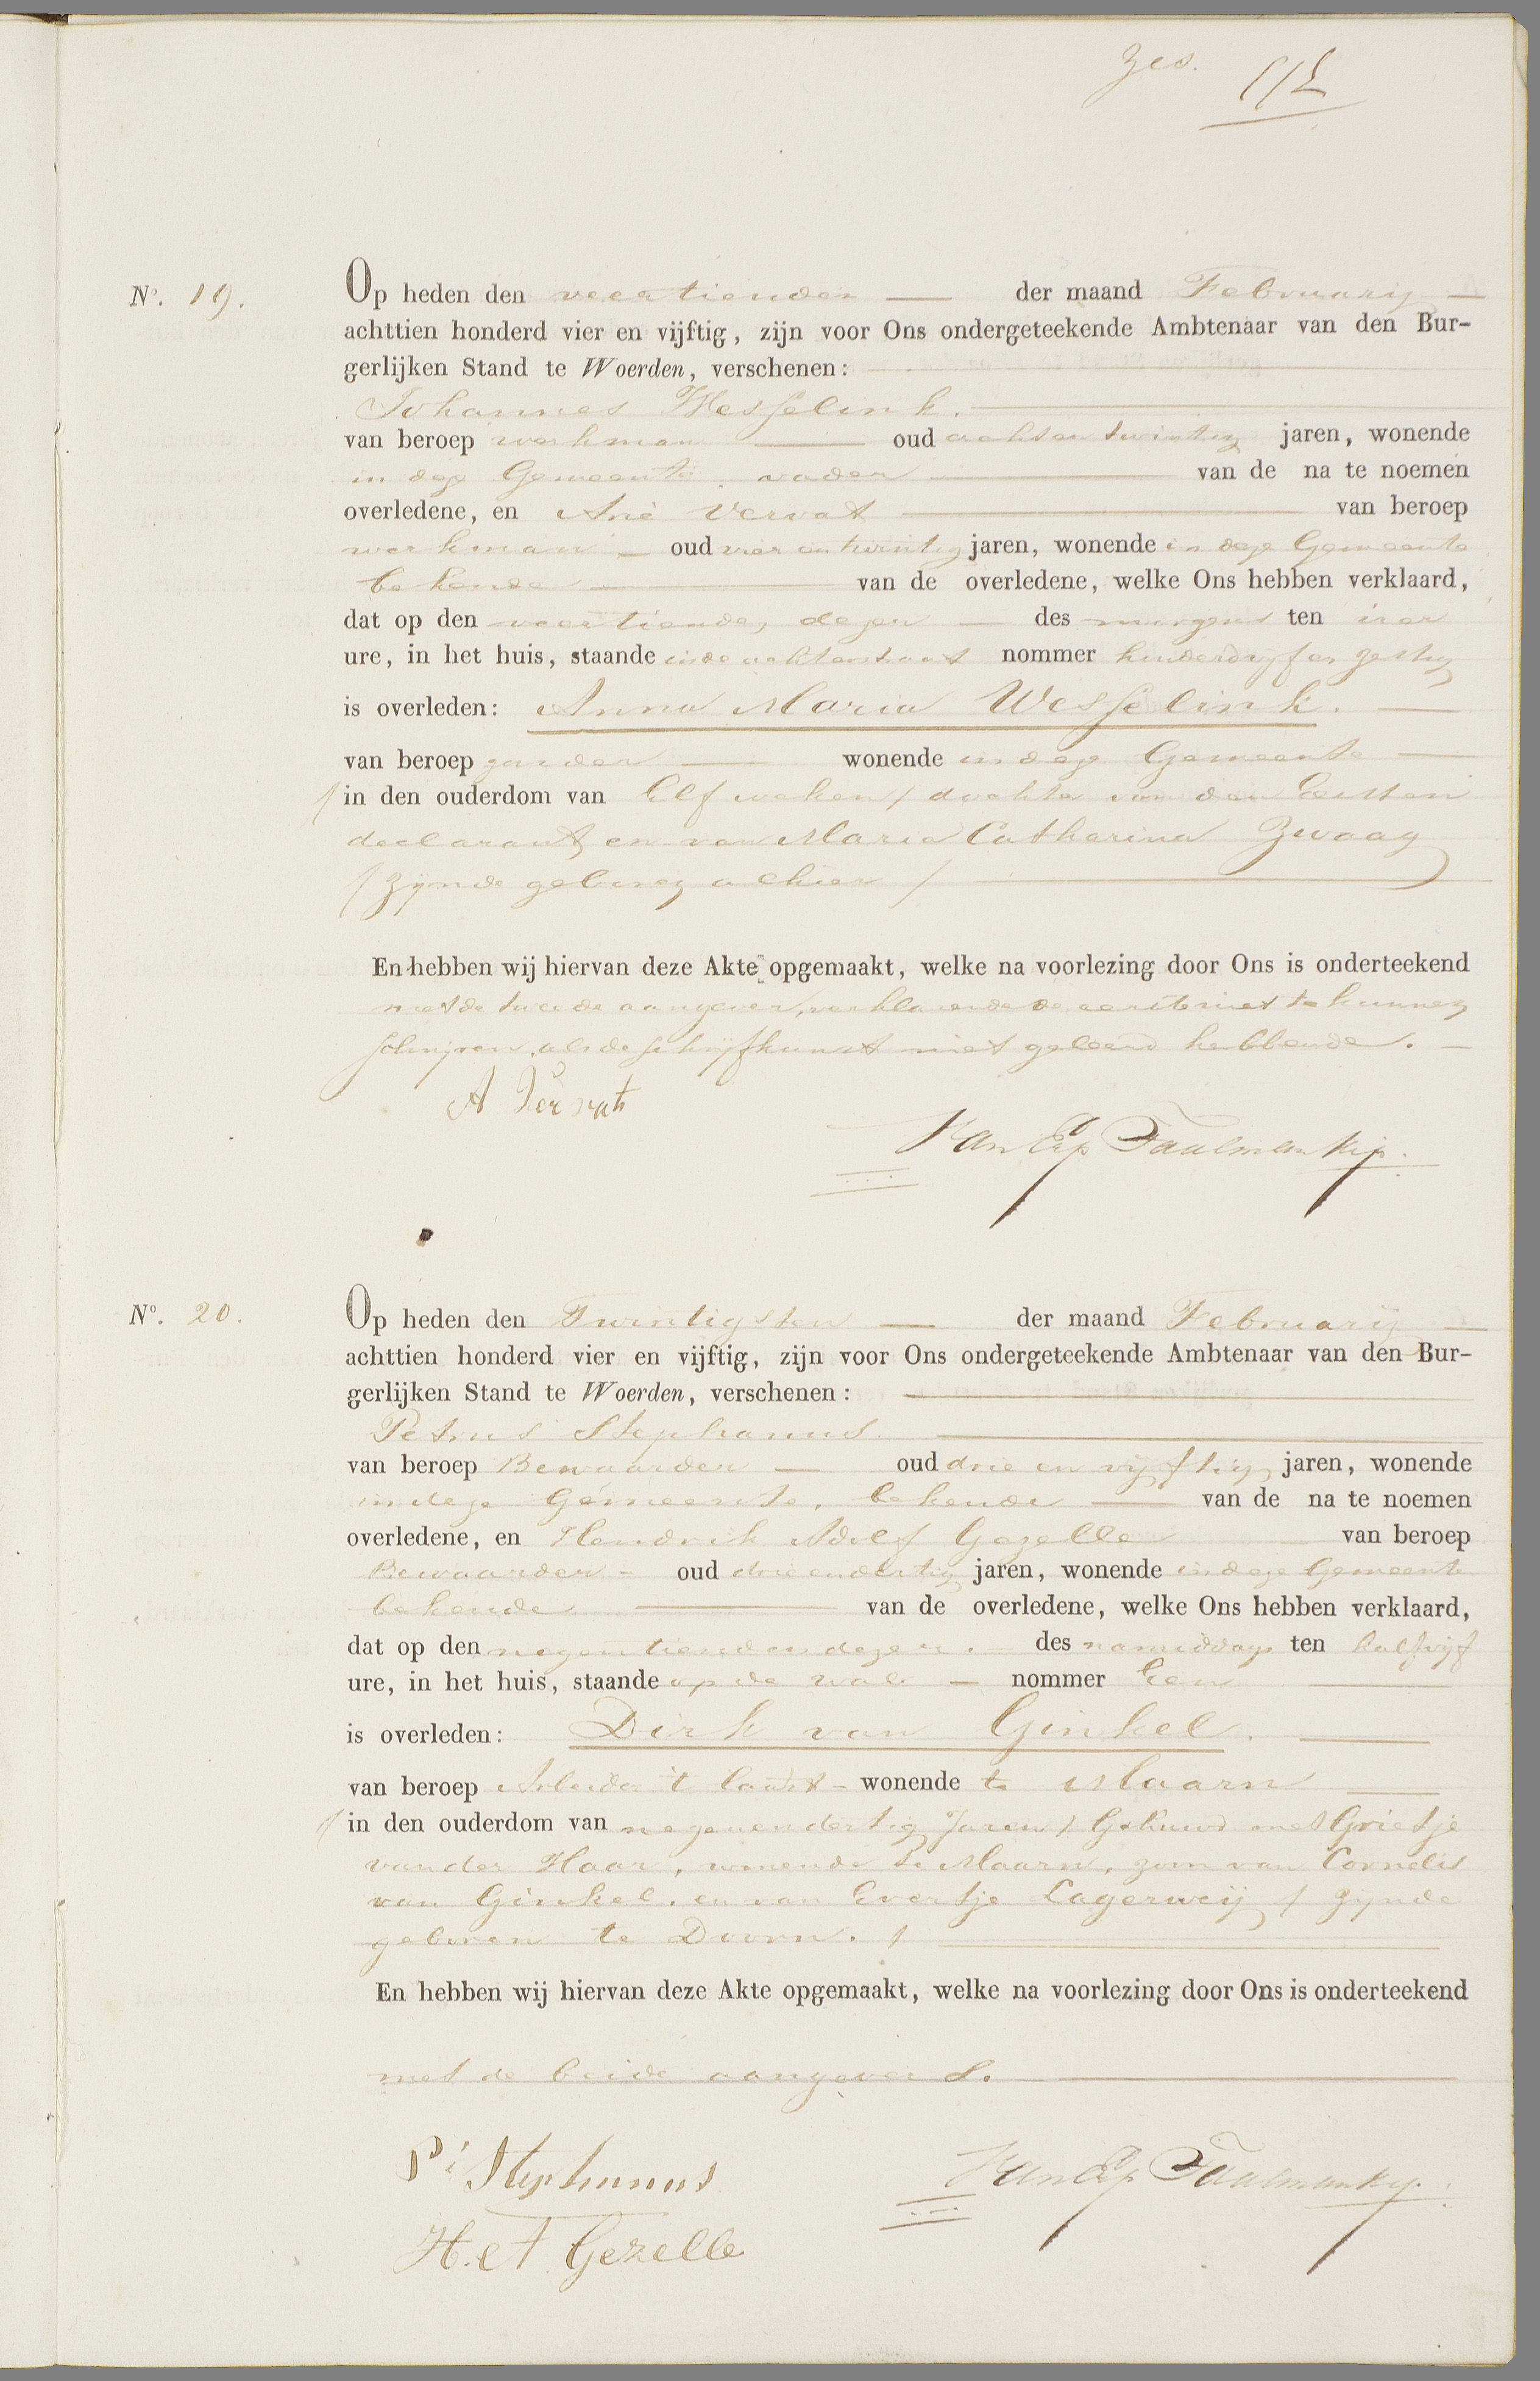 zes.
N°. 19.
Op heden den veertienden der maand February
achttien honderd vier en vijftig, zijn voor Ons ondergeteekende Ambtenaar van den Bur-
gerlijken Stand te Woerden, verschenen:
Johannes Wesselink.
van beroep werkman oud acht en twintig jaren, wonende
in deze Gemeente, vader van de na te noemen
overledene, en Arie Vervat van beroep
werkman oud vier en twintig jaren, wonende in deze Gemeente
bekende van de overledene, welke Ons hebben verklaard,
dat op den veertienden dezer des morgens ten vier
ure, in het huis, staande in de achterstraat nommer honderd vijf en zestig
is overleden: Anna Maria Wesselink.
van beroep zonder wonende in deze Gemeente
/ in den ouderdom van Elf weken / dochter van den Eersten
declarant en van Maria Catharina Zwaag
/ zijnde geboren alhier /
En hebben wij hiervan deze Akte opgemaakt, welke na voorlezing door Ons is onderteekend
met de tweede aangever, verklarende de eerste niet te kunnen
schrijven, als de schrijfkunst niet geleerd hebbende.
A Vervat
Van Erp Taalman Kip.
N°. 20.
Op heden den Twintigsten der maand Februarij
achttien honderd vier en vijftig, zijn voor Ons ondergeteekende Ambtenaar van den Bur-
gerlijken Stand te Woerden, verschenen:
Petrus Stephanus
van beroep Bewaarder oud drie en vijftig jaren, wonende
in deze Gemeente, bekende van de na te noemen
overledene, en Hendrik Adolf Gezelle van beroep
Bewaarder - oud drie en dertig jaren, wonende in deze Gemeente
bekende van de overledene, welke Ons hebben verklaard,
dat op den negentienden dezer. des namiddags ten half vijf
ure, in het huis, staande op de wal nommer Een
is overleden: Dirk van Ginkel.
van beroep Arbeider 't laatst - wonende te Maarn
/ in den ouderdom van negenendertig Jaren / Gehuwd met Grietje
van der Haar, wonende te Maarn, zoon van Cornelis
van Ginkel, en van Evertje Lagerweij / zijnde
geboren te Doorn. /
En hebben wij hiervan deze Akte opgemaakt, welke na voorlezing door Ons is onderteekend
met de beide aangevers.
P: Stephanus
Van Erp Taalman Kip.
H. A Gezelle